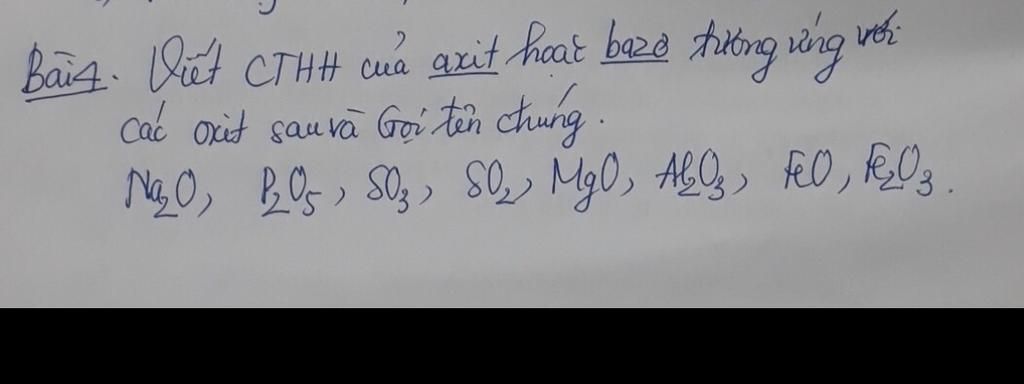 Bài 4. Viết CTHH của axit hoặc bazơ tương ứng với
các oxit sau và Gọi tên chúng.
Na₂O, P₂O₅, SO₃, SO₂, MgO, Al₂O₃, FeO, Fe₂O₃.